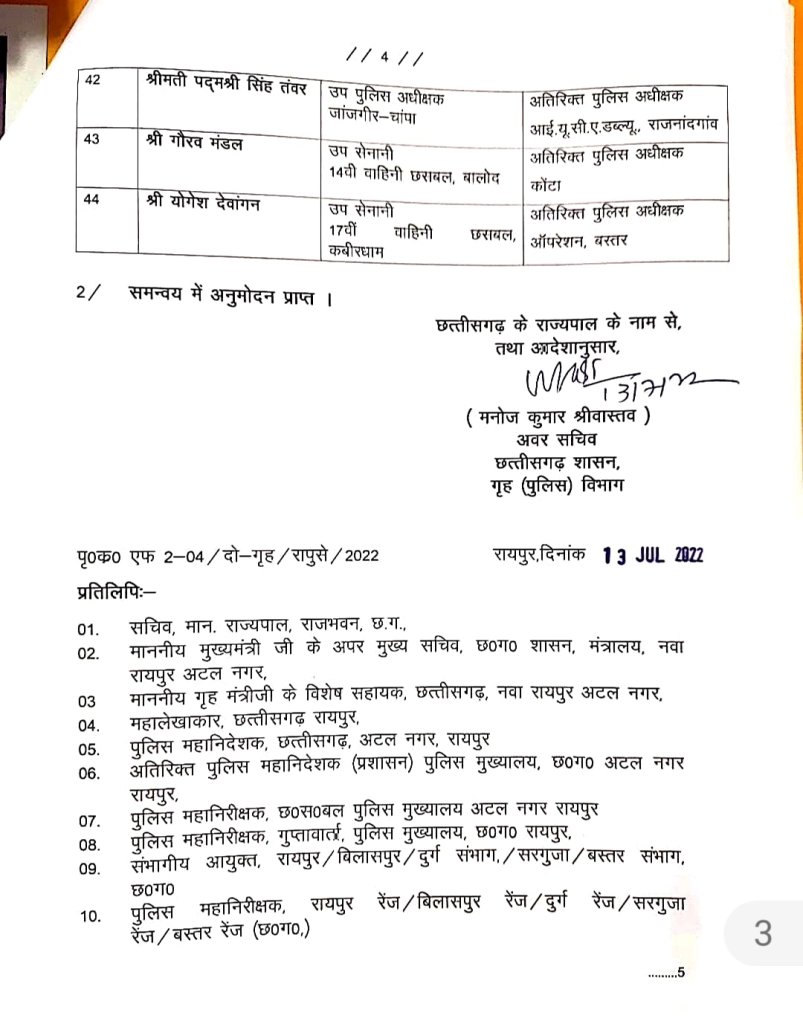 // 4 //
42 श्रीमती पद्मश्री सिंह तंवर उप पुलिस अधीक्षक अतिरिक्त पुलिस अधीक्षक
जांजगीर–चांपा आई.यू.सी.ए.डब्ल्यू., राजनांदगांव
43 श्री गौरव मंडल उप सेनानी अतिरिक्त पुलिस अधीक्षक
14वी वाहिनी छराबल, बालोद कोंटा
44 श्री योगेश देवांगन उप सेनानी अतिरिक्त पुलिस अधीक्षक
17वीं वाहिनी छराबल, ऑपरेशन, बस्तर
कबीरधाम
2/ समन्वय में अनुमोदन प्राप्त ।
छत्तीसगढ़ के राज्यपाल के नाम से,
तथा आदेशानुसार,
( मनोज कुमार श्रीवास्तव )
अवर सचिव
छत्तीसगढ़ शासन,
गृह (पुलिस) विभाग
पृ0क0 एफ 2–04/दो–गृह/रापुसे/2022 रायपुर,दिनांक 13 JUL 2022
प्रतिलिपिः–
01. सचिव, मान. राज्यपाल, राजभवन, छ.ग.,
02. माननीय मुख्यमंत्री जी के अपर मुख्य सचिव, छ0ग0 शासन, मंत्रालय, नवा
रायपुर अटल नगर,
03 माननीय गृह मंत्रीजी के विशेष सहायक, छत्तीसगढ़, नवा रायपुर अटल नगर,
04. महालेखाकार, छत्तीसगढ़ रायपुर,
05. पुलिस महानिदेशक, छत्तीसगढ़, अटल नगर, रायपुर
06. अतिरिक्त पुलिस महानिदेशक (प्रशासन) पुलिस मुख्यालय, छ0ग0 अटल नगर
रायपुर,
07. पुलिस महानिरीक्षक, छ0स0बल पुलिस मुख्यालय अटल नगर रायपुर
08. पुलिस महानिरीक्षक, गुप्तावार्ता, पुलिस मुख्यालय, छ0ग0 रायपुर,
09. संभागीय आयुक्त, रायपुर/बिलासपुर/दुर्ग संभाग,/सरगुजा/बस्तर संभाग,
छ0ग0
10. पुलिस महानिरीक्षक, रायपुर रेंज/बिलासपुर रेंज/दुर्ग रेंज/सरगुजा
रेंज/बस्तर रेंज (छ0ग0,)
3
.........5